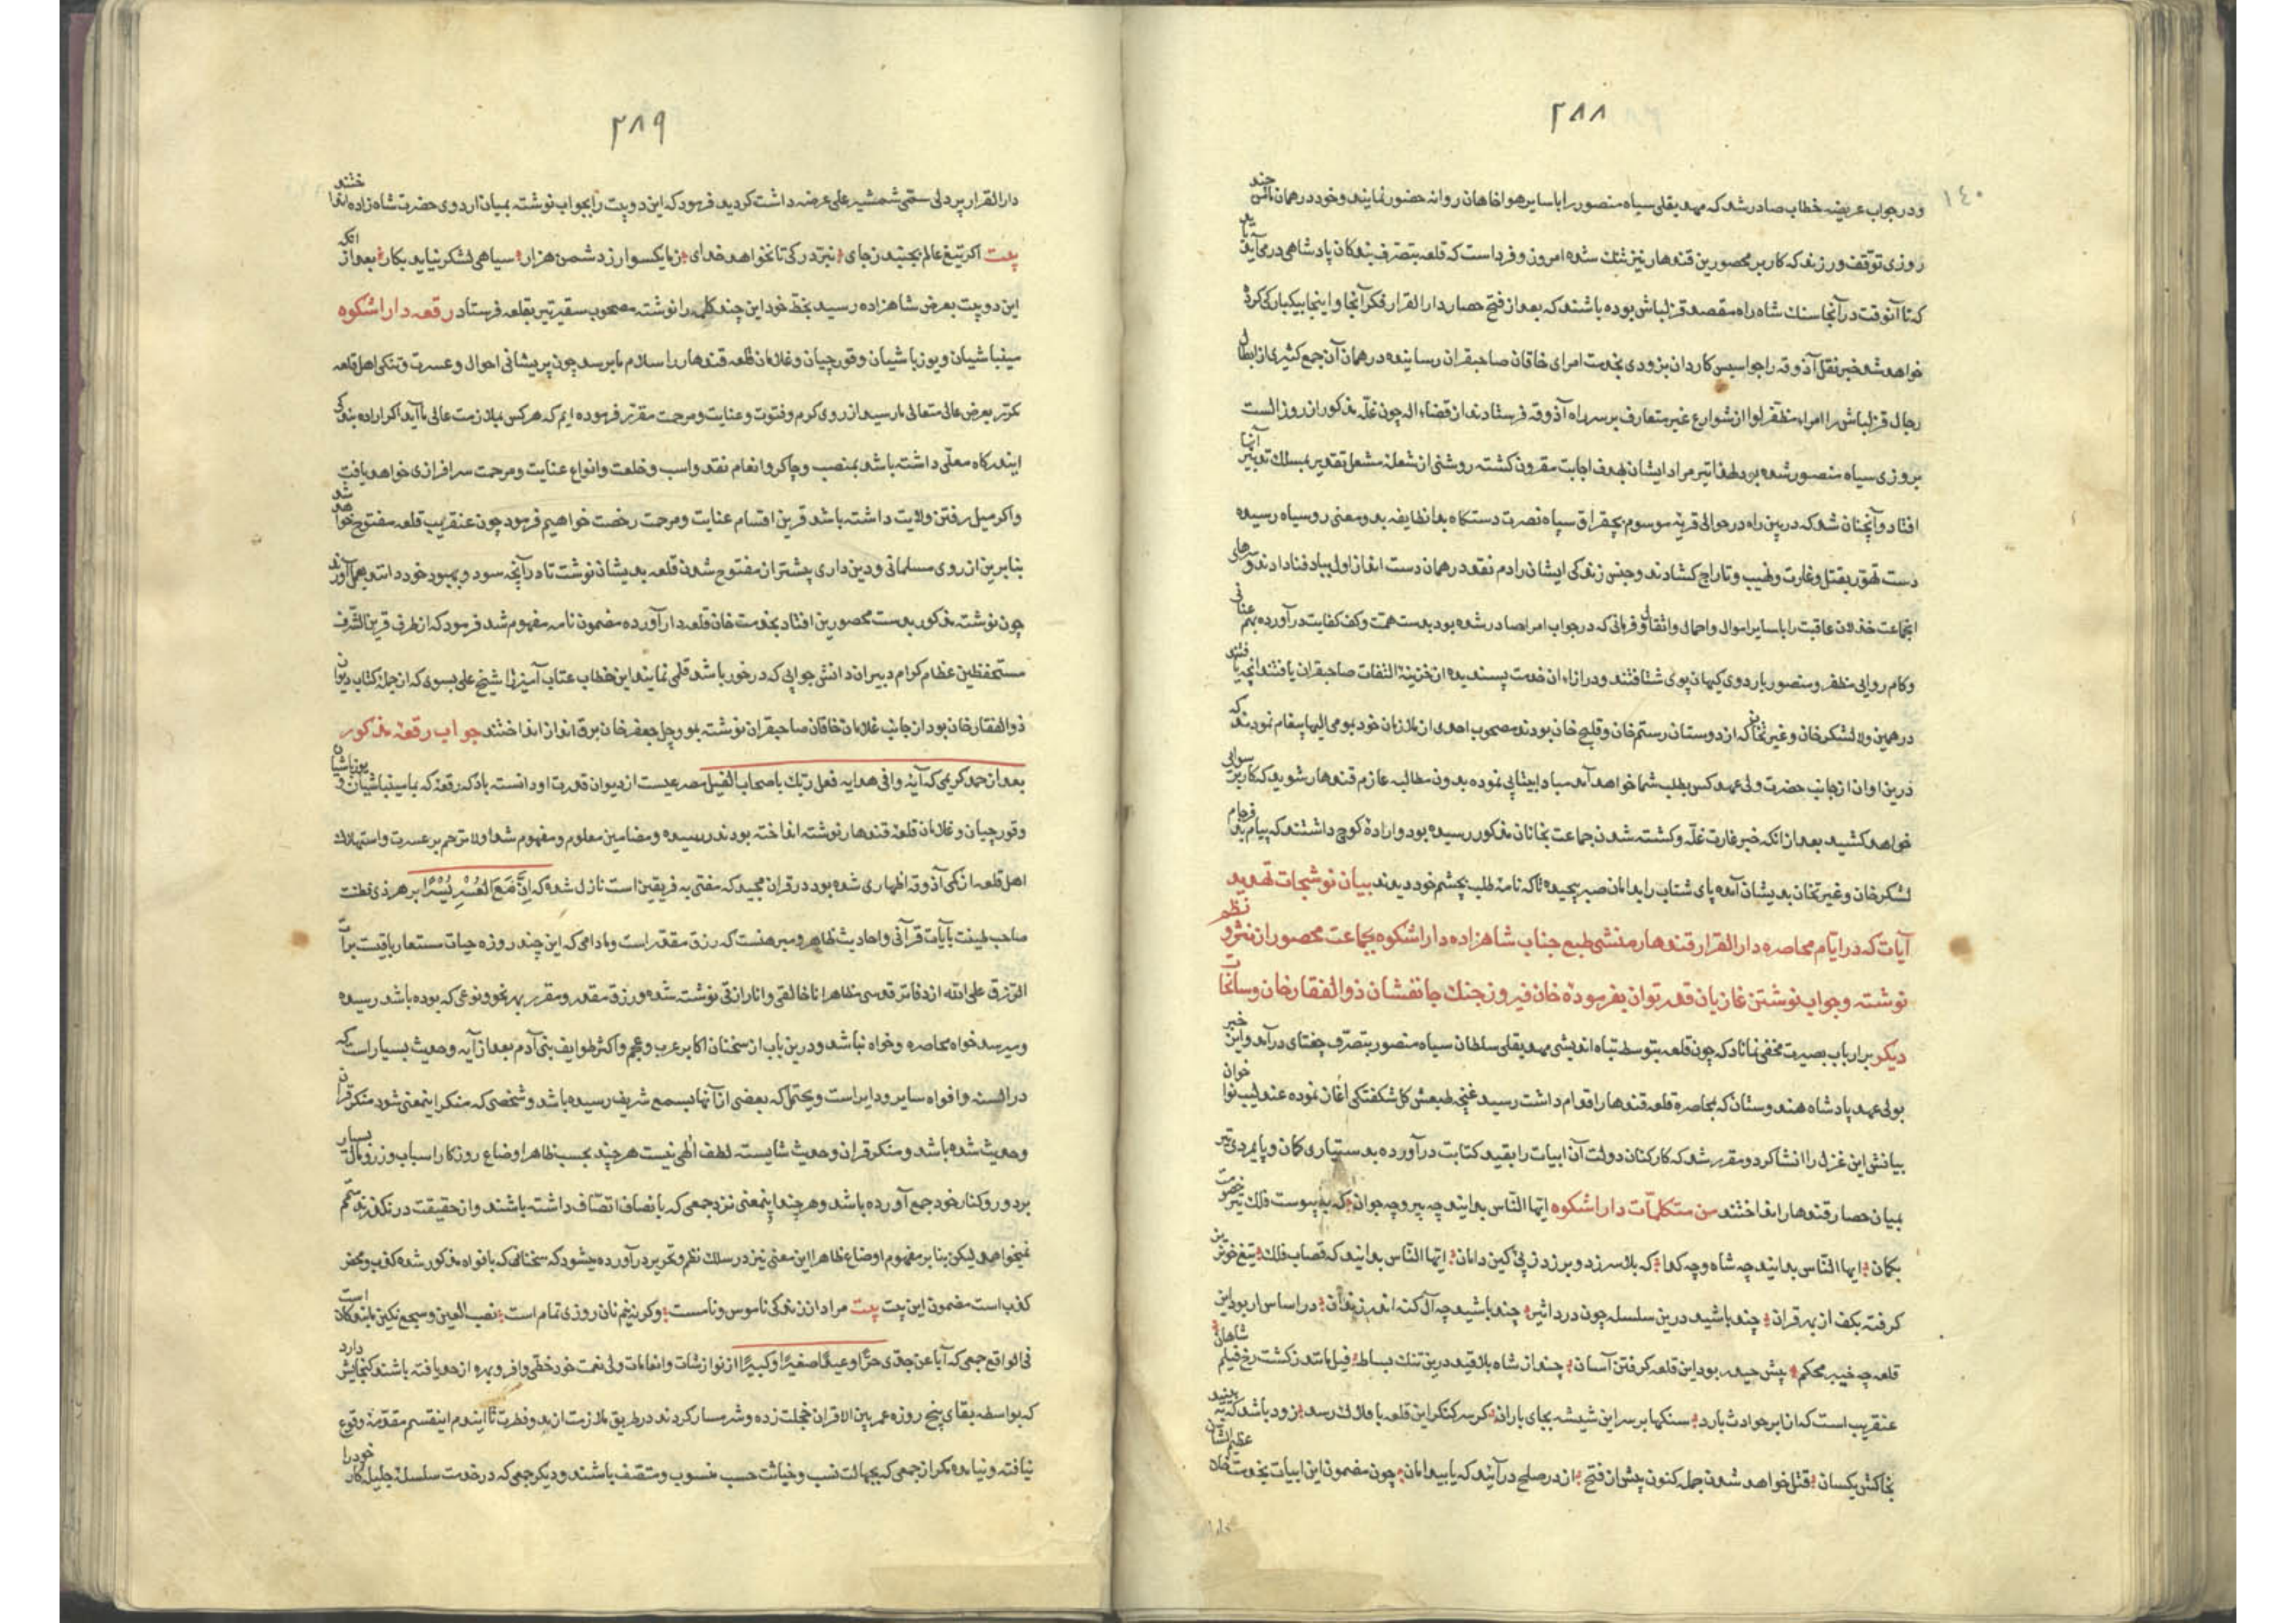 ۲۸۸
۱۴۰
و در جواب عریضه خطاب صادر شد که مهدیقلی سیاه منصور را با سایر هواخاهان روانه حضور نمایند و خود در همان مأمن چند
روزی توقف ورزند که کار بر محصورین قندهار نیز تنك شده امروز و فرداست که قلعه بتصرف بندکان پادشاهی درمی‌آید
که تا آنوقت در آنجا سنك شاه راه مقصد قزلباش بوده باشند که بعد از فتح حصار دار القرار فکر آنجا و اینجا بیکبار کی کرده
خواهد شد خبر نقل آذوقه را جواسیس کاردان بزودی بخدمت امرای خاقان صاحبقران رسانیده در همان آن جمع کثیری از ابطال
رجال قزلباش را امراء مظفر لوا از شوارع غیر متعارف بر سر راه آذوقه فرستادند از قضاء اله چون غله مذکور از روز الست
بروزی سیاه منصور شده بود تیر مراد ایشان بهدف اجابت مقرون کشته روشنی از شعله مشعل تقدیر بمسلك تدبیر آنها
افتاد و آنچنان شد که در بین راه در حوالی قریه موسوم بچقراق سپاه نصرت دستکاه بدانطایفه بد و معنی روسیاه رسیده
دست تهور بقتل و غارت و نهیب و تاراج کشادند و جنس زندکی ایشان را دم نقد در همان دست انداز اول بباد فنا دادند و سرهای
اجماعت خذلان عاقبت را با سایر اموال و احمال و اثقال و فرمانی که در جواب امرا صادر شده بود بدست همت و کف کفایت در آورده بهم عنانی
و کام روایی مظفر و منصور باردوی کیهان پوی شتافتند و در ازاء ان خدمت پسندیده از خزینه التفات صاحبقران یافتند آنچه یافتند
در همین ولا لشکر خان و غیرتخان که از دوستان رستم خان و قلیج خان بودند مصحوب احدی از ملازمان خود بومی الیها پیغام نمودند که
درین اوان از جانب حضرت ولی عهد کس بطلب شما خواهد آمد مبادا بیتابی نموده بدون مطالبه عازم قندهار شوید که کار برسوایی
خواهد کشید بعد از انکه خبر غارت غله و کشته شدن جماعت بخانان مذکور رسیده بود و اراده کوچ داشتند که پیام بدفرجام
لشکر خان و غیرتخان بدیشان آمده پای شتاب را بدامان صبر پیچیده تا که نامه طلب بچشم خود دیدند بیان نوشتجات تهدید
آیات که در ایام محاصره دار القرار قندهار منشی طبع جناب شاهزاده داراشکوه بجماعت محصور از نثر و نظم
نوشته و جواب نوشتن غازیان قدر توان بفرموده خان فیروز جنك جانفشان ذو الفقار خان و سانحات
دیکر بر ارباب بصیرت مخفی نماناد که چون قلعه بتوسط تباه اندیشی مهدیقلی سلطان سیاه منصور بتصرف چغتای در آمد و این خبر
بولی عهد پادشاه هندوستان که بمحاصره قلعه قندهار اقدام داشت رسید غنچه طبعش کل شکفتکی آغاز نموده عندلیب نوا خوان
بیانش این غزل را انشا کرد و مقرر شد که کارکنان دولت آن ابیات را بقید کتابت در آورده بدستیاری کمان و پایمردی تیر
بمیان حصار قندهار انداختند من متکلمات داراشکوه ایها الناس بدانید چه پیر و چه جوان که به پیوست فلك تیر خصومت
بکمان ایها الناس بدانید چه شاه و چه کدا که بلا سر زد و بر زد ز پی کین دامان ایها الناس بدانید که قصاب فلك تیغ خونریز
کرفته بکف از بهر قران چند باشید درین سلسله چون درد اثیر چند باشید چه آل کنه اندر زندان در اساس ار بود این
قلعه چه خیبر محکم پیش حیدر بود این قلعه کرفتن آسان چند از شاه بلا قید درین تنك بساط فیل باشد ز کشت رخ فیلم شاهان
عنقریب است که از ابر حوادث بارد سنکها بر سر این شیشه بجای باران کر سر کنکر این قلعه با فلاك رسد زود باشد که به بینید
بخاکش یکسان قتل خواهد شدن جمله کنون پیش از فتح از در صلح در آیند که یابید امان چون مضمون این ابیات بخدمت خان عظیم الشان
دار
۲۸۹
دار القرار پردلی ستمی شمشیر علی عرضه داشت کردید فرمود که این دو بیت را بجواب نوشته بمیان اردوی حضرت شاه زاده انداختند
بیت اکر تیغ عالم بجنبد ز جای نبرد رکی تا نخواهد خدای ز ما یکسوار ز دشمن هزار سیاهی لشکر نیاید بکار بعد از انکه
این دو بیت بعرض شاهزاده رسید بخط خود این چند کلمه را نوشته مصحوب سفیر تیر بقلعه فرستاد رقعه داراشکوه
مینباشیان و یوزباشیان و قورچیان و غلامان قلعه قندهار را سلام ما برسد چون پریشانی احوال و عسرت و تنکی اهل قلعه
مکرر بعرض عالی متعالی ما رسید از روی کرم و فتوت و عنایت و مرحمت مقرر فرموده ایم که هر کس بملازمت عالی ما آید اکر اراده بندکی
ایندرکاه معلی داشته باشد بمنصب و جاکر و انعام نقد و اسب و خلعت و انواع عنایت و مرحمت سرافرازی خواهد یافت
و اکر میل رفتن ولایت داشته باشد قرین اقسام عنایت و مرحمت رخصت خواهیم فرمود چون عنقریب قلعه مفتوح خواهد شد
بنا برین از روی مسلمانی و دین داری پیشتر از مفتوح شدن قلعه بدیشان نوشت تا در آنچه سود و بهبود خود دانند بعمل آورند
چون نوشته مذکور بدست محصورین افتاد بخدمت خان قلعه دار آورده مضمون نامه مفهوم شد فرمود که از طرف قرین الشرف
مستحفظین عظام کرام دبیران دانش جوابی که در خور باشد قلمی نمایند این خطاب عتاب آمیز را شیخ علی بسوی که از جمله کتاب دیوان
ذو الفقار خان بود از جانب غلامان خاقان صاحبقران نوشته بمورچل جعفر خان برق انداز انداختند جواب رقعه مذکور
بعد از حمد کریمی که آیه وافی هدایه فعل ربك باصحاب الفیل مصرعیست از دیوان قدرت او دانسته باد که رقعه که بمامینباشیان و یوزباشیان
و قورچیان و غلامان قلعه قندهار نوشته انداخته بودند رسیده و مضامین معلوم و مفهوم شد اولا ترحم بر عسرت و استهلاك
اهل قلعه از کمی آذوقه اظهاری شده بود در قران مجید که مفتی به فریقین است نازل شده که إِنَّ مَعَ الْعُسْرِ یُسْرًا بر هر ذی فطنت
صاحب طینت بآیات قرآنی و احادیث ظاهر و مبرهنست که رزق مقدر است و مادامی که این چند روزه حیات مستعار باقیست برآت
الرزق علی الله از دفاتر قدسی مظاهر انا خالقی و انا رازقی نوشته شده و رزق مقدر و مقرر بهر نحو و نوعی که بوده باشد رسیده
و میرسد خواه محاصره و خواه نباشد و درین باب از سخنان اکابر عرب و عجم و اکثر طوایف بنی آدم بعد از آیه و حدیث بسیار است که
در السنه و افواه سایر و دایر است و یحتمل که بعضی از آنها بسمع شریف رسیده باشد و شخصی که منکر اینمعنی شود منکر قران
و حدیث شده باشد و منکر قران و حدیث شایسته لطف الهی نیست هر چند بحسب ظاهر اوضاع روزکار اسباب و زر و مال بسیار
بر دور و کنار خود جمع آورده باشد و هر چند اینمعنی نزد جمعی که با نصاف اتصاف داشته باشند و از حقیقت در نکذرند ستم
نمیخواهد لیکن بنا بر مفهوم اوضاع ظاهرا این معنی نیز در سلك نظم و تحریر در آورده میشود که سخنانی که بافواه مذکور شده کذب و محض
کذب است مضمون این بیت بیت مراد از زندکی ناموس و نامست و کر نه نیم نان روزی تمام است نصب العین و سجع نکین ما بندکان است
فی الواقع جمعی که آبا عن جدی حرًا و عبدًا صغیرًا و کبیرًا از نوازشات و انعامات ولی نعمت خود حظی وافر و بهره از حد یافته باشند کنجایش دارد
که بواسطه بقای پنج روزه عمر بین الاقران خجلت زده و شرمسار کردند در طریق ملازمت از بدو فطرت تا ایندم اینقسم مقدمه وقوع
نیافته و نیامده مکر از جمعی که بجهالت نسب و خباثت حسب منسوب و متصف باشند و دیکر جمعی که در خدمت سلسله جلیله کار خود را